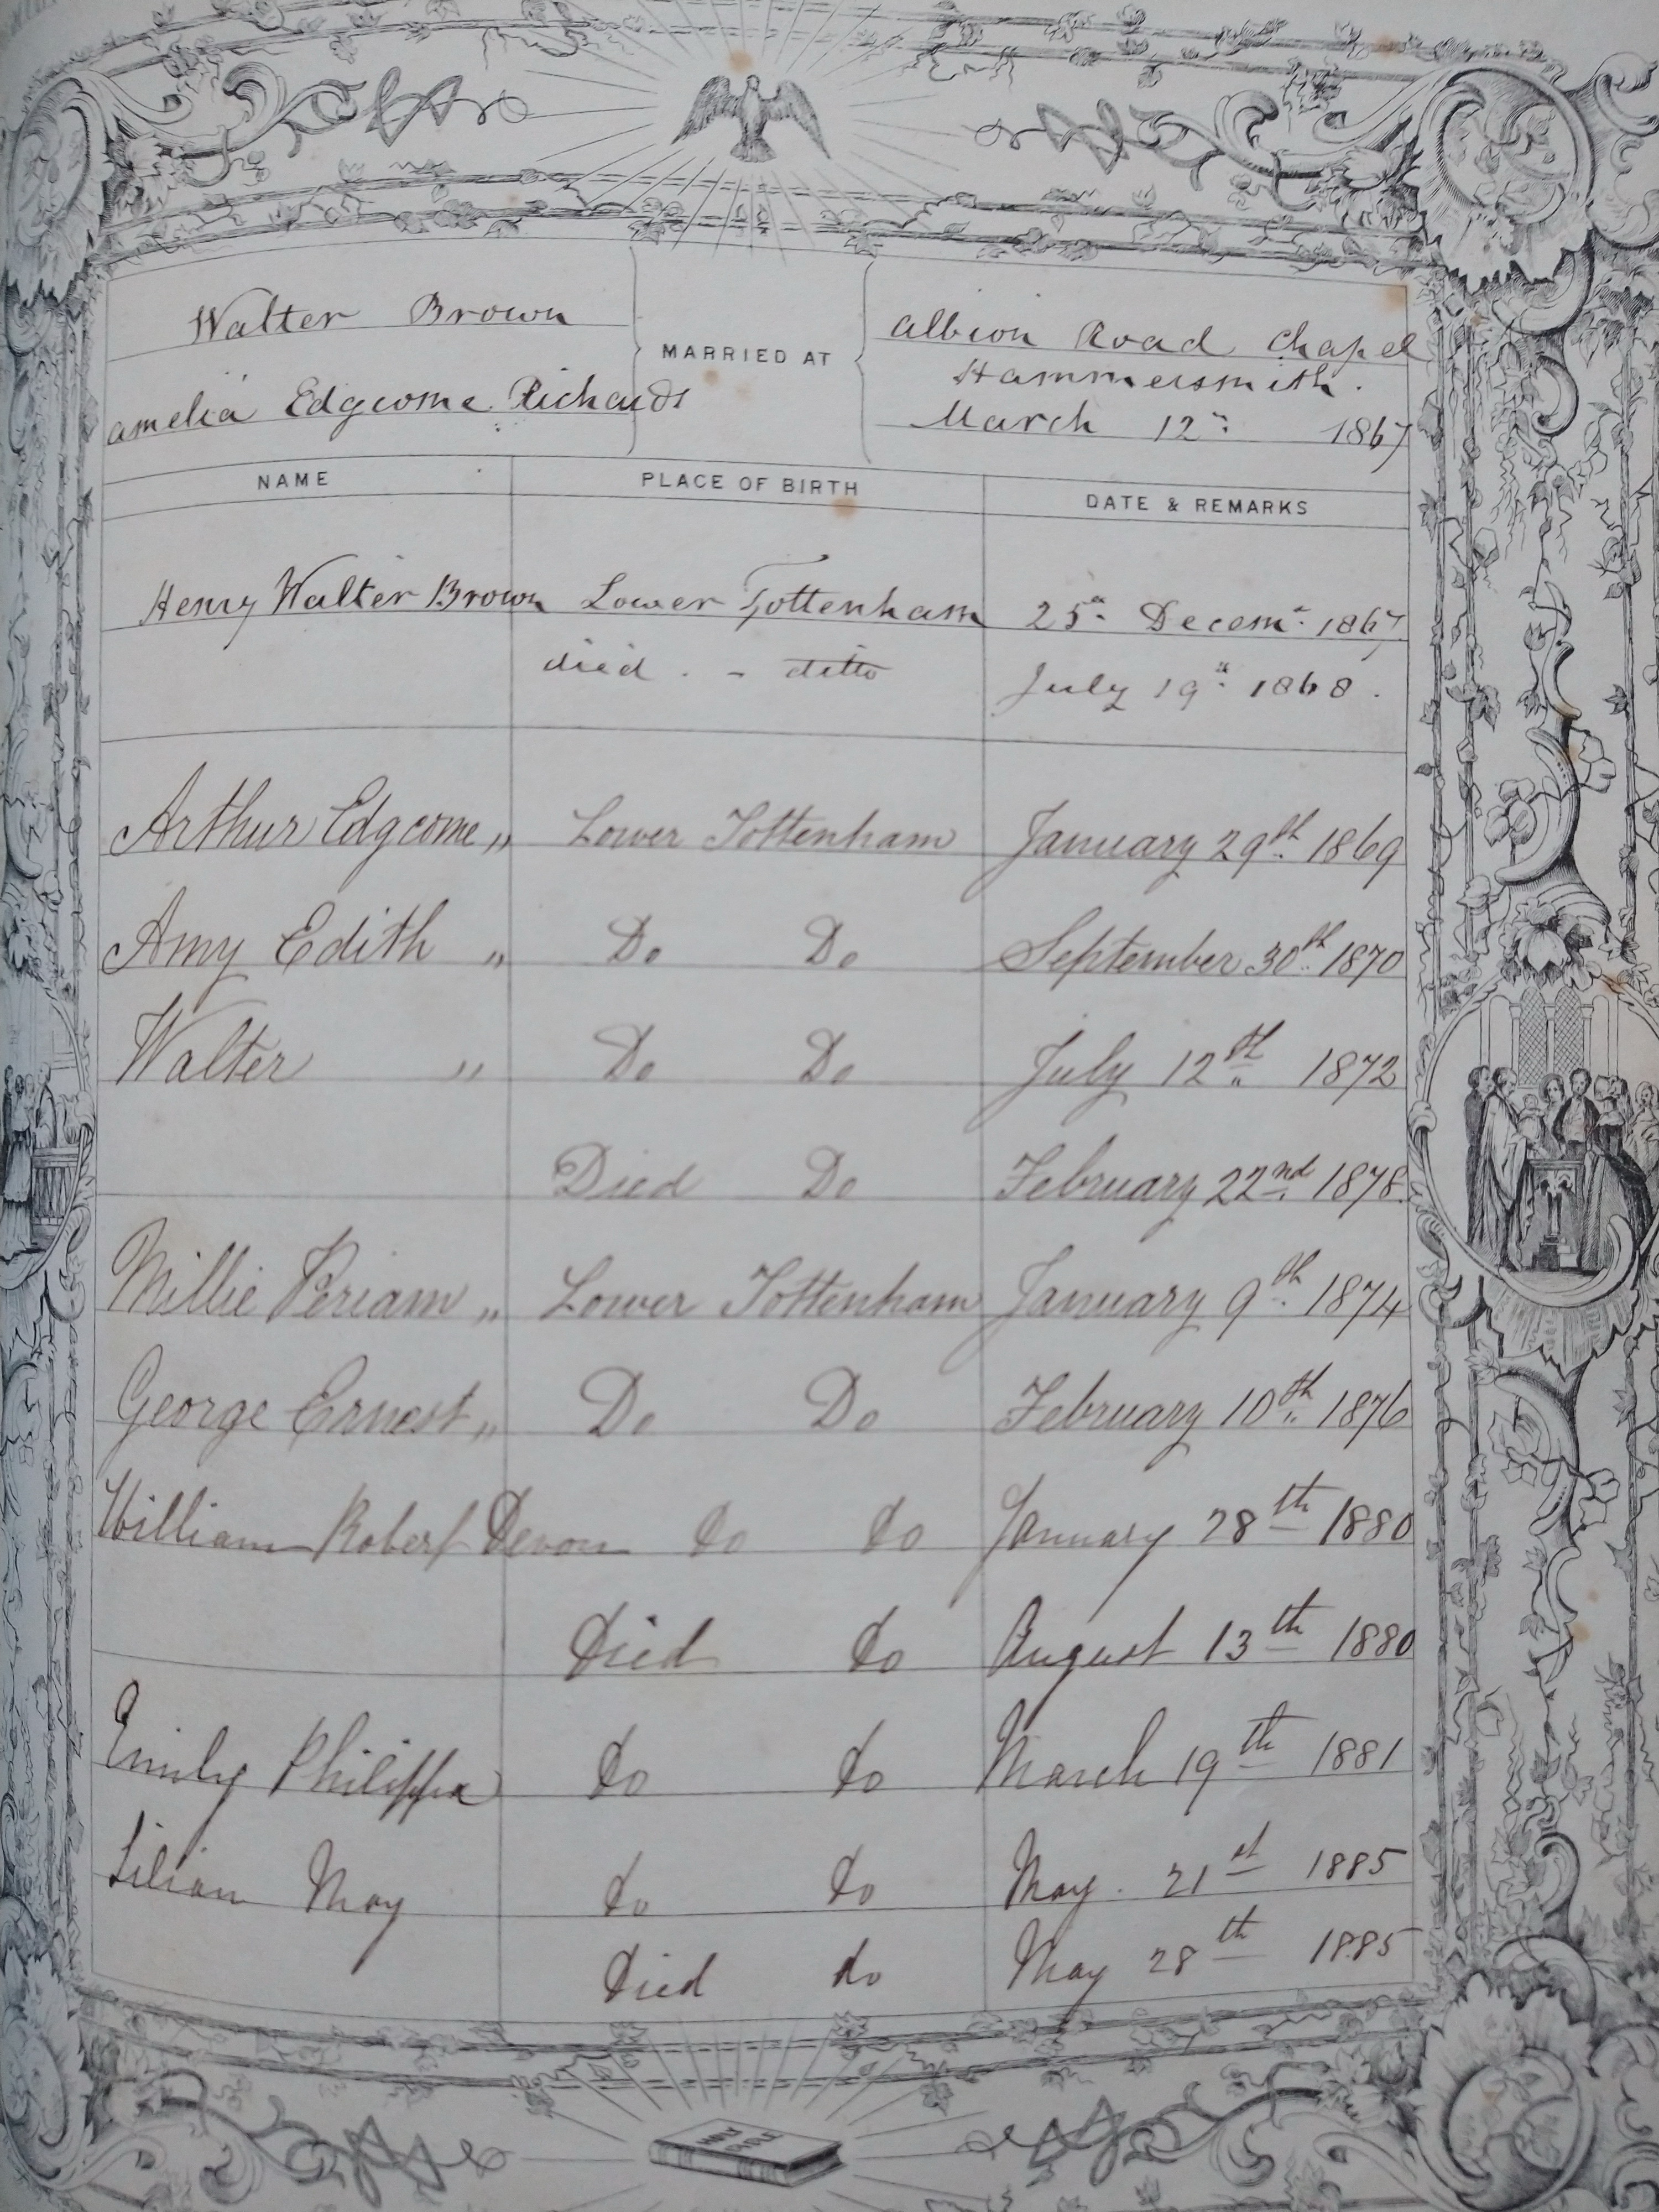 Walter Brown
amelia Edgcome Richards
MARRIED AT
Albion Road Chapel
Hammersmith.
March 12th 1867
NAME PLACE OF BIRTH DATE & REMARKS
Henry Walter Brown Lower Tottenham 25th Decemr 1867
died . - ditto July 19th 1868.
Arthur Edgcome " Lower Tottenham January 29th 1869
Amy Edith " Do Do September 30th 1870
Walter " Do Do July 12th 1872
Died Do February 22nd 1878.
Millie Periam " Lower Tottenham January 9th 1874
George Ernest " Do Do February 10th 1876
William Robert Devon do do January 28th 1880
Died do August 13th 1880
Emily Philippa do do March 19th 1881
Lilian May do do May. 21st 1885
Died do May 28th 1885
HOLY
BIBLE